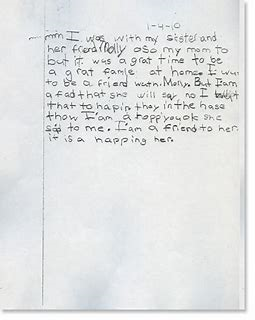 1-4-10
I was with my sister and
her frend Molly oso my mom to
but it was a grat time to be
a grat famle at home. I wut
to be a friend with Molly. But I am
afad that she will say no I
that to hapin thay in the hase
thow I'am a happy ok she
sad to me. I'am a friend to her
it is a happing her.